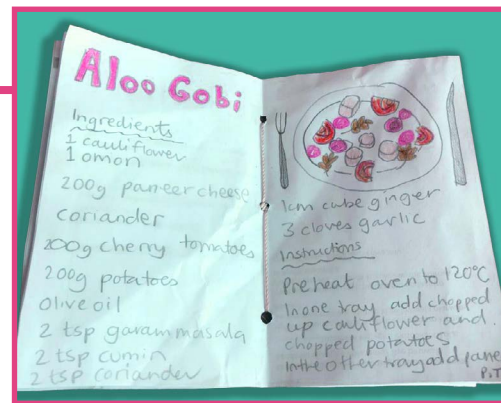 Aloo Gobi
Ingredients
1 cauliflower
1 onion
200g paneer cheese
coriander
200g cherry tomatoes
200g potatoes
Olive oil
2 tsp garam masala
2 tsp cumin
2 tsp coriander
1cm cube ginger
3 cloves garlic
Instructions
Preheat oven to 120°C
In one tray add chopped
up cauliflower and
chopped potatoes
In the other tray add pane